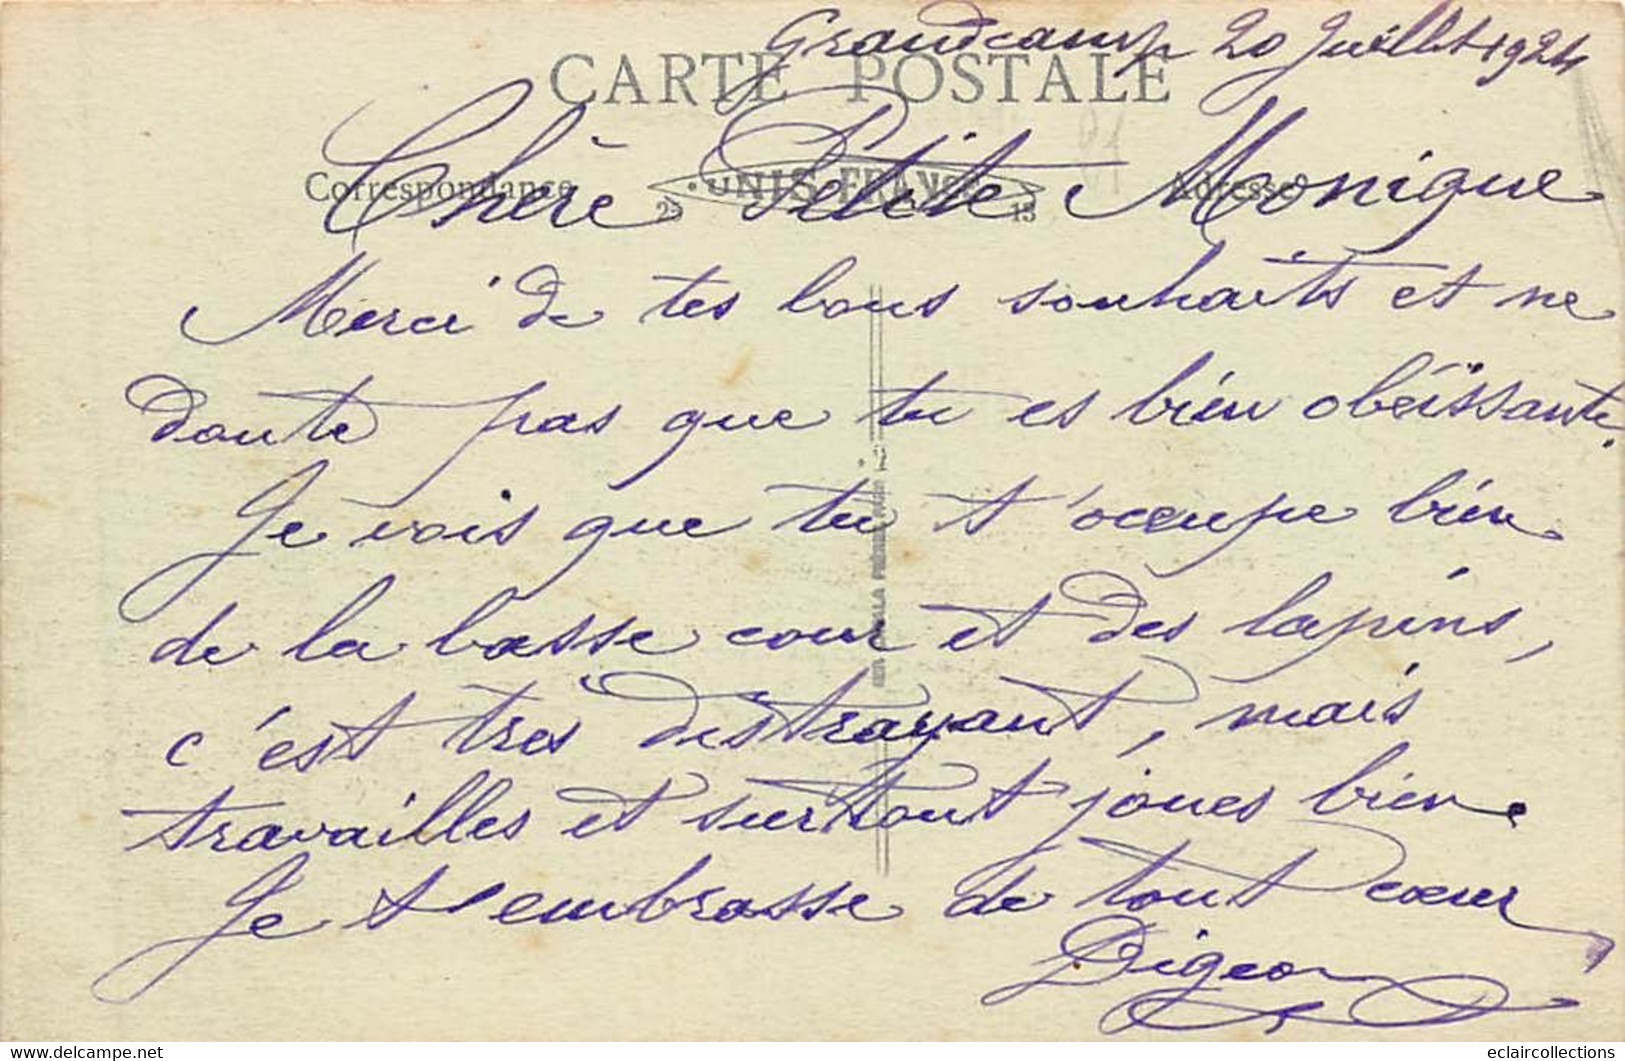 Grandcamp 20 Juillet 1924
CARTE POSTALE
Chère Petite Monique
Correspondance UNIS FRANCE Adresse
Merci de tes bons souhaits et ne
doute pas que tu es bien obéissante.
Je vois que tu t'occupe bien
de la basse cour et des lapins,
c'est tres distrayant, mais
travailles et surtout joues bien
Je t'embrasse de tout cœur
Digeon
eclaircollections
www.delcampe.net